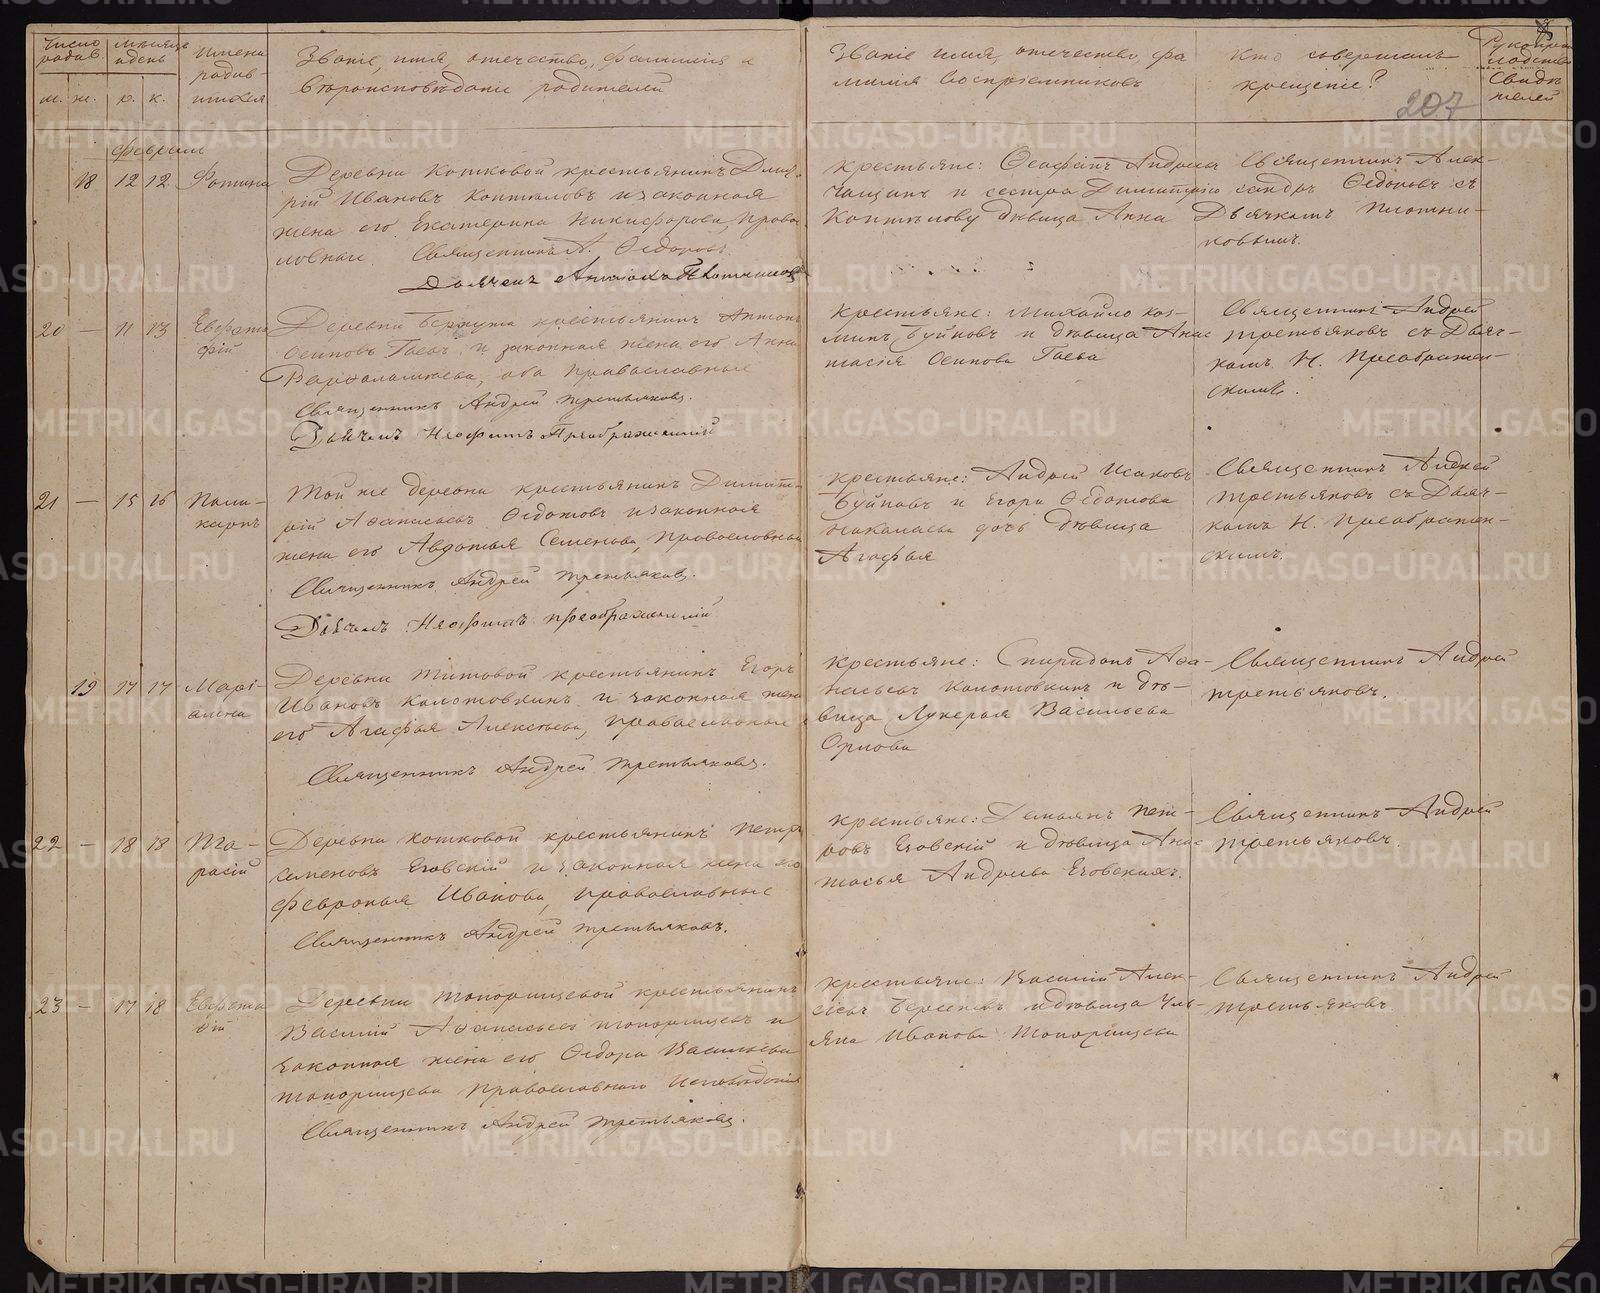 Число родив.
м. ж.
Месяцъ и день
р. к.
Имена родив-
шихся
Званіе, имя, отчество, фамилія и
вѣроисповѣданіе родителей
Званіе имя, отчество, фа
милія воспріемниковъ
Кто совершалъ
крещеніе?
Рукопри
кладство
свидѣ
телей
207
Февраля
18 12 12 Фотина
Деревни Кошковой крестьянинъ Дмит-
рій Ивановъ Коптяловъ и законная
жена его Екатерина Никифорова, право
славные. Священникъ А. Ѳедоровъ.
Дьячекъ Плотниковъ
Крестьяне: Андреевъ
Чащинъ и сестра Димитрію
Коптялову дѣвица Анна
Священникъ Алек-
сандръ Ѳедоровъ съ
Дьячкомъ Плотни-
ковымъ.
20 — 11 13 Евѳима
фій
Деревни крестьянинъ Антонъ
Осиповъ Гаевъ и законная жена его Анна
Варѳоломеева, оба православные
Священникъ Андрей Третьяковъ.
Дьячекъ Неофитъ Преображенскій
Крестьяне: Михайло Коз-
минъ Буйновъ и дѣвица Анас
тасія Осипова Гаева
Священникъ Андрей
Третьяковъ съ Дьяч-
комъ Н. Преображен-
скимъ.
21 — 15 16 Поли-
карпъ
Той же деревни крестьянинъ Димит-
рій Аѳанасьевъ Ѳедотовъ и законная
жена его Авдотья Семенова, православные
Священникъ Андрей Третьяковъ.
Дьячекъ Неофитъ Преображенскій
Крестьяне: Андрей Исаковъ
Буйновъ и Егора Ѳедотова
дочь дѣвица
Агафья
Священникъ Андрей
Третьяковъ съ Дьяч-
комъ Н. Преображен-
скимъ.
19 17 17 Марі-
амна
Деревни Титовой крестьянинъ Егоръ
Ивановъ Колотовкинъ и законная жена
его Агафья Алексѣева, православные
Священникъ Андрей Третьяковъ.
Крестьяне: Спиридонъ Аѳа-
насьевъ Колотовкинъ и дѣ-
вица Лукерья Васильева
Орлова
Священникъ Андрей
Третьяковъ.
22 — 18 18
расій
Деревни Кошковой крестьянинъ Петръ
Семеновъ Еговскій и законная жена его
Февронья Иванова, православные
Священникъ Андрей Третьяковъ.
Крестьяне: Демьянъ Пет-
ровъ Еговскій и дѣвица Анас
тасья Андреева Еговскихъ.
Священникъ Андрей
Третьяковъ.
23 — 17 18
Деревни Топорищевой крестьянинъ
Василій Аѳанасьевъ Топорищевъ и
законная жена его Ѳедора Васильева
Топорищева Православнаго Исповѣданія
Священникъ Андрей Третьяковъ.
Крестьяне: Василій Алек-
сѣевъ Берсеневъ и дѣвица Уль-
яна Иванова Топорищева
Священникъ Андрей
Третьяковъ.
METRIKI.GASO-URAL.RU